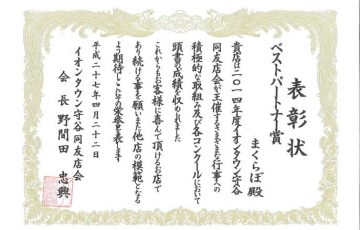 表彰状
ベストパートナー賞
まくらぼ殿
貴店は二〇一四年度イオンタウン守谷
同友店会が主催するさまざまな行事への
積極的な取組み及び各コンクールにおいて
頭書の成績を収められました
これからもお客様に喜んで頂けるお店で
あり続ける事を願いまた他店の模範となる
よう期待しここにその栄誉を表します
平成二十七年四月二十二日
イオンタウン守谷同友店会
会長 野間田 忠興